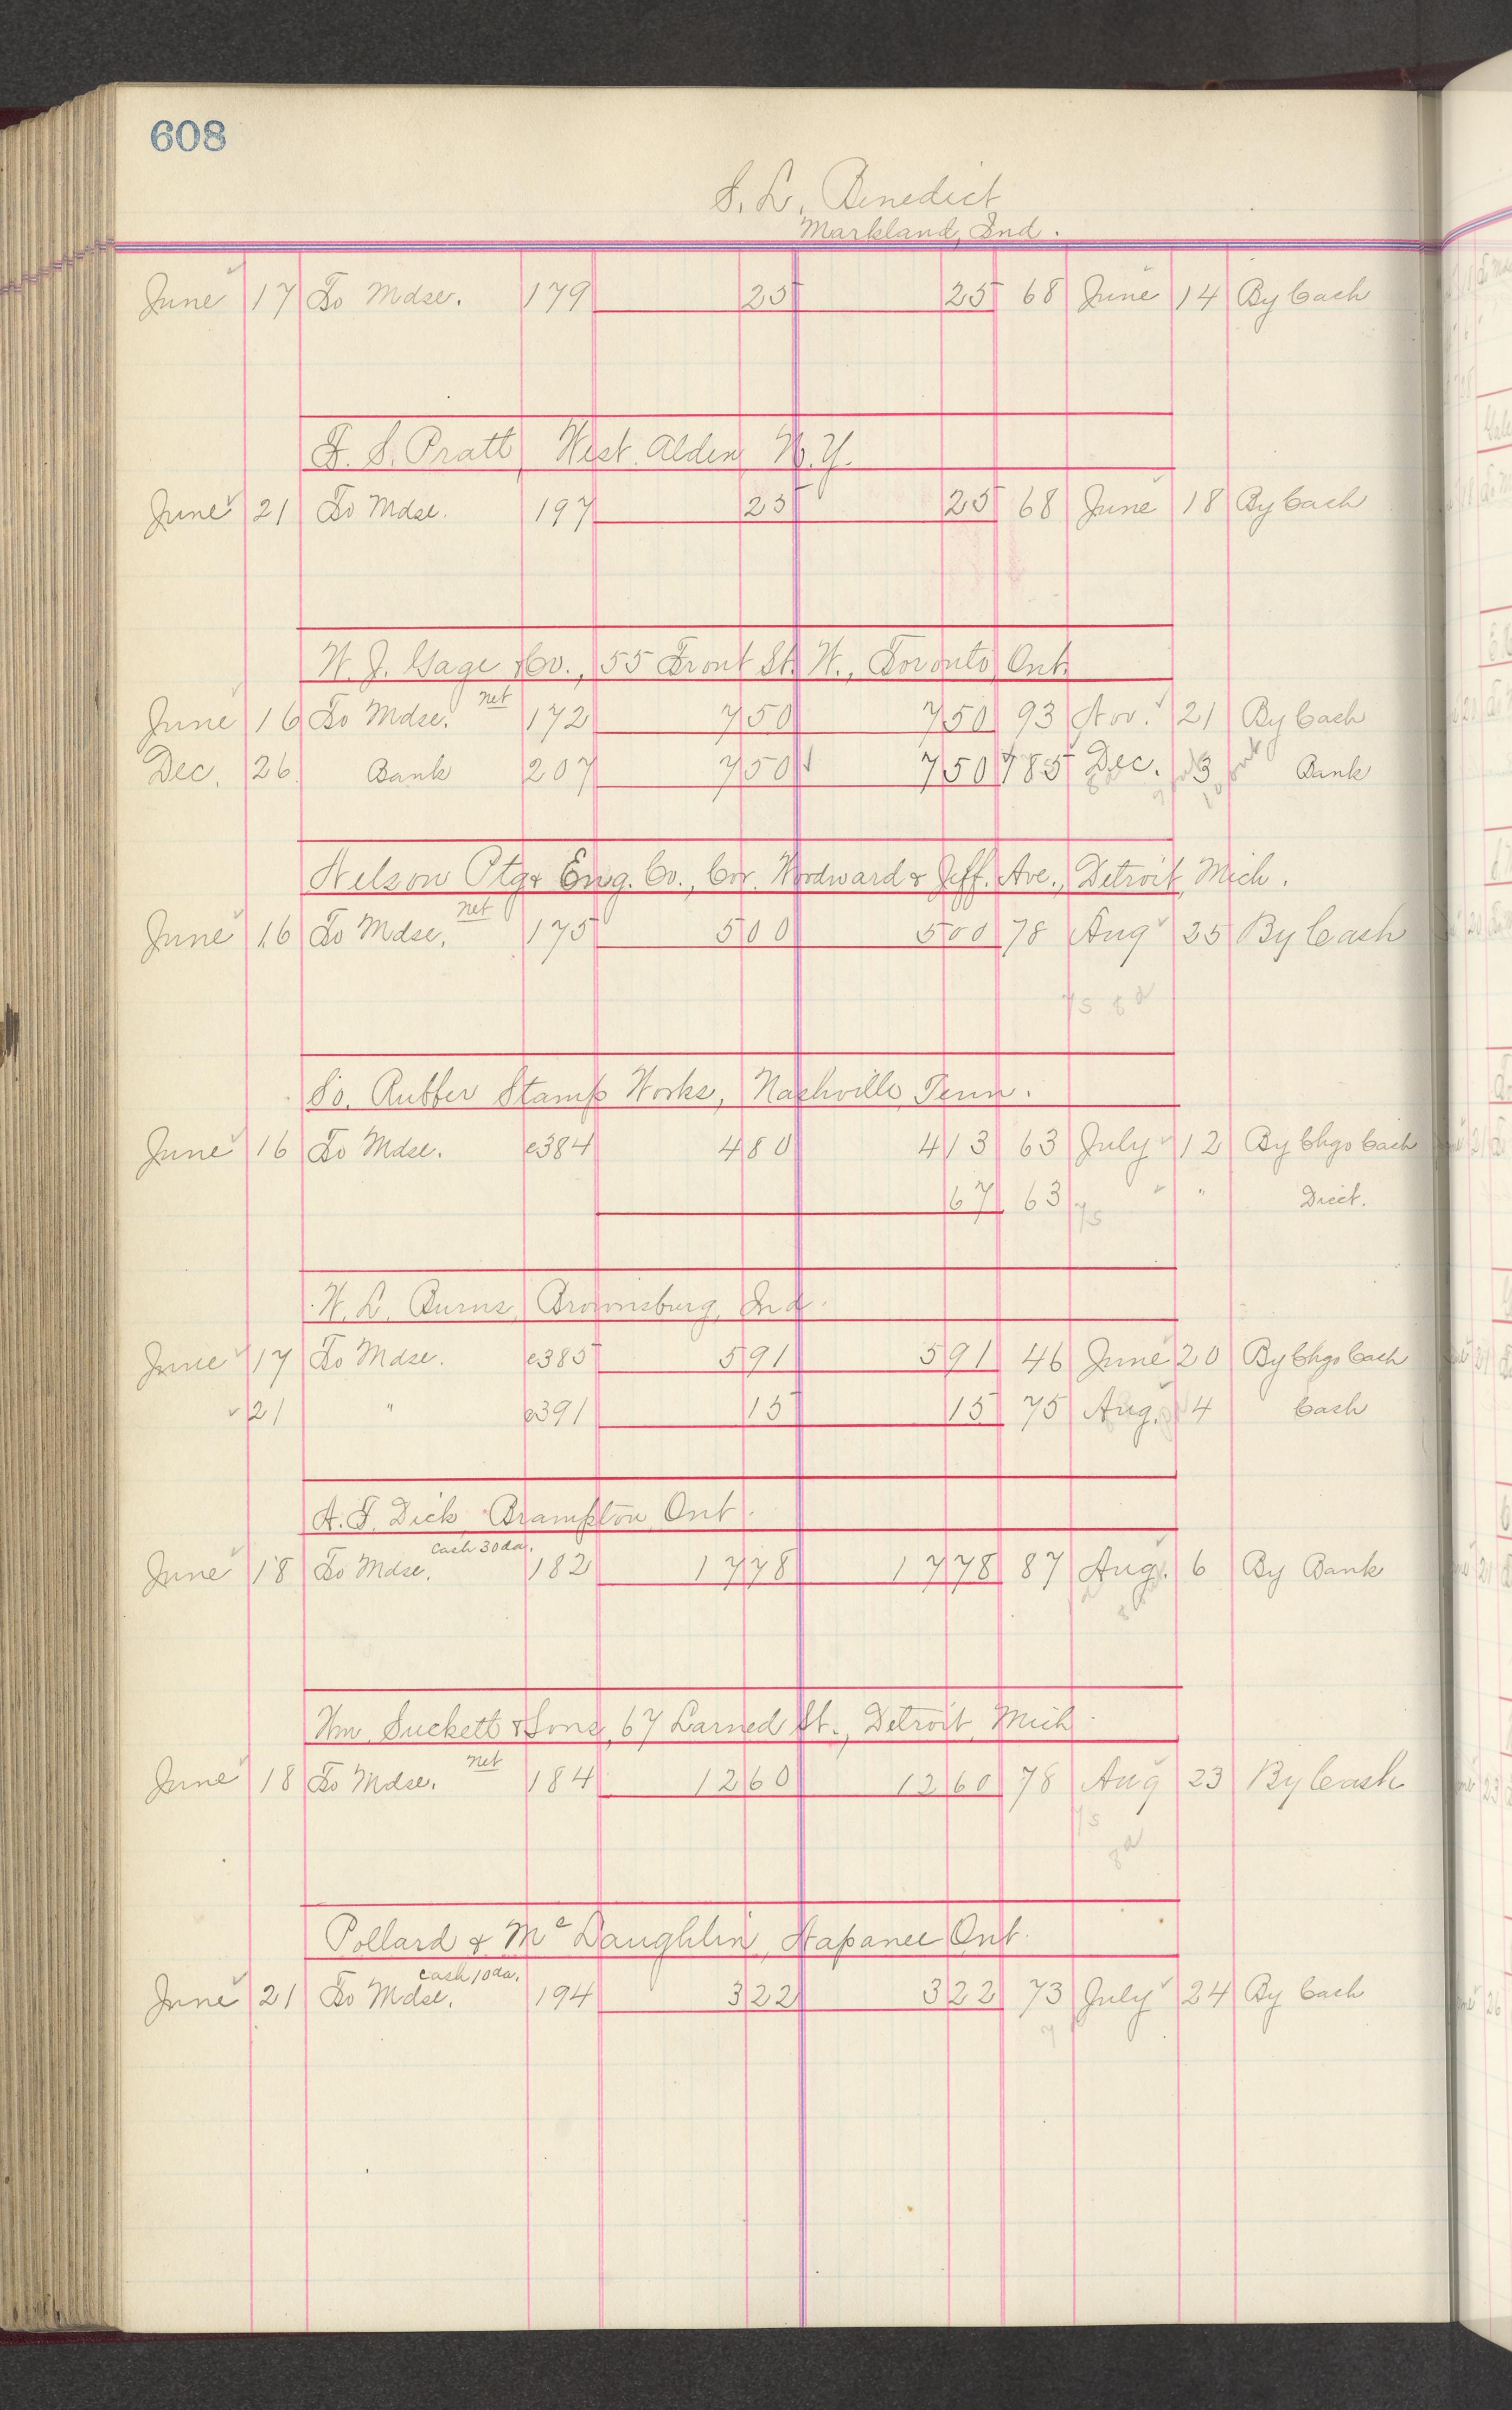 608
S. L. Benedict
Markland, Ind.
June 17 To Mdse. 179 25 25 68 June 14 By Cash
F. S. Pratt, West Alden, N.Y.
June 21 To Mdse. 197 25 25 68 June 18 By Cash
W. J. Gage & Co., 55 Front St. W., Toronto, Ont.
June 16 To Mdse. net 172 7 50 7 50 93 Nov. 21 By Cash
Dec. 26 Bank 207 7 50 7 50 785 Dec. 3 Bank
Nelson Ptg & Eng. Co., Cor. Woodward & Jeff. Ave., Detroit, Mich.
June 16 To Mdse. net 175 5 00 5 00 78 Aug 25 By Cash
So. Rubber Stamp Works, Nashville, Tenn.
June 16 To Mdse. c384 4 80 4 13 63 July 12 By Chgo Cash
67 63 " " Disct.
W. L. Burns, Brownsburg, Ind.
June 17 To Mdse. c385 5 91 5 91 46 June 20 By Chgo Cash
21 " c391 15 15 75 Aug. 4 Cash
A. F. Dick, Brampton, Ont.
June 18 To Mdse. Cash 30 da. 182 17 78 17 78 87 Aug. 6 By Bank
Wm. Suckett & Sons, 67 Larned St., Detroit, Mich.
June 18 To Mdse. net 184 12 60 12 60 78 Aug 23 By Cash
Pollard & McLaughlin, Napanee, Ont.
June 21 To Mdse. Cash 10 da. 194 3 22 3 22 73 July 24 By Cash